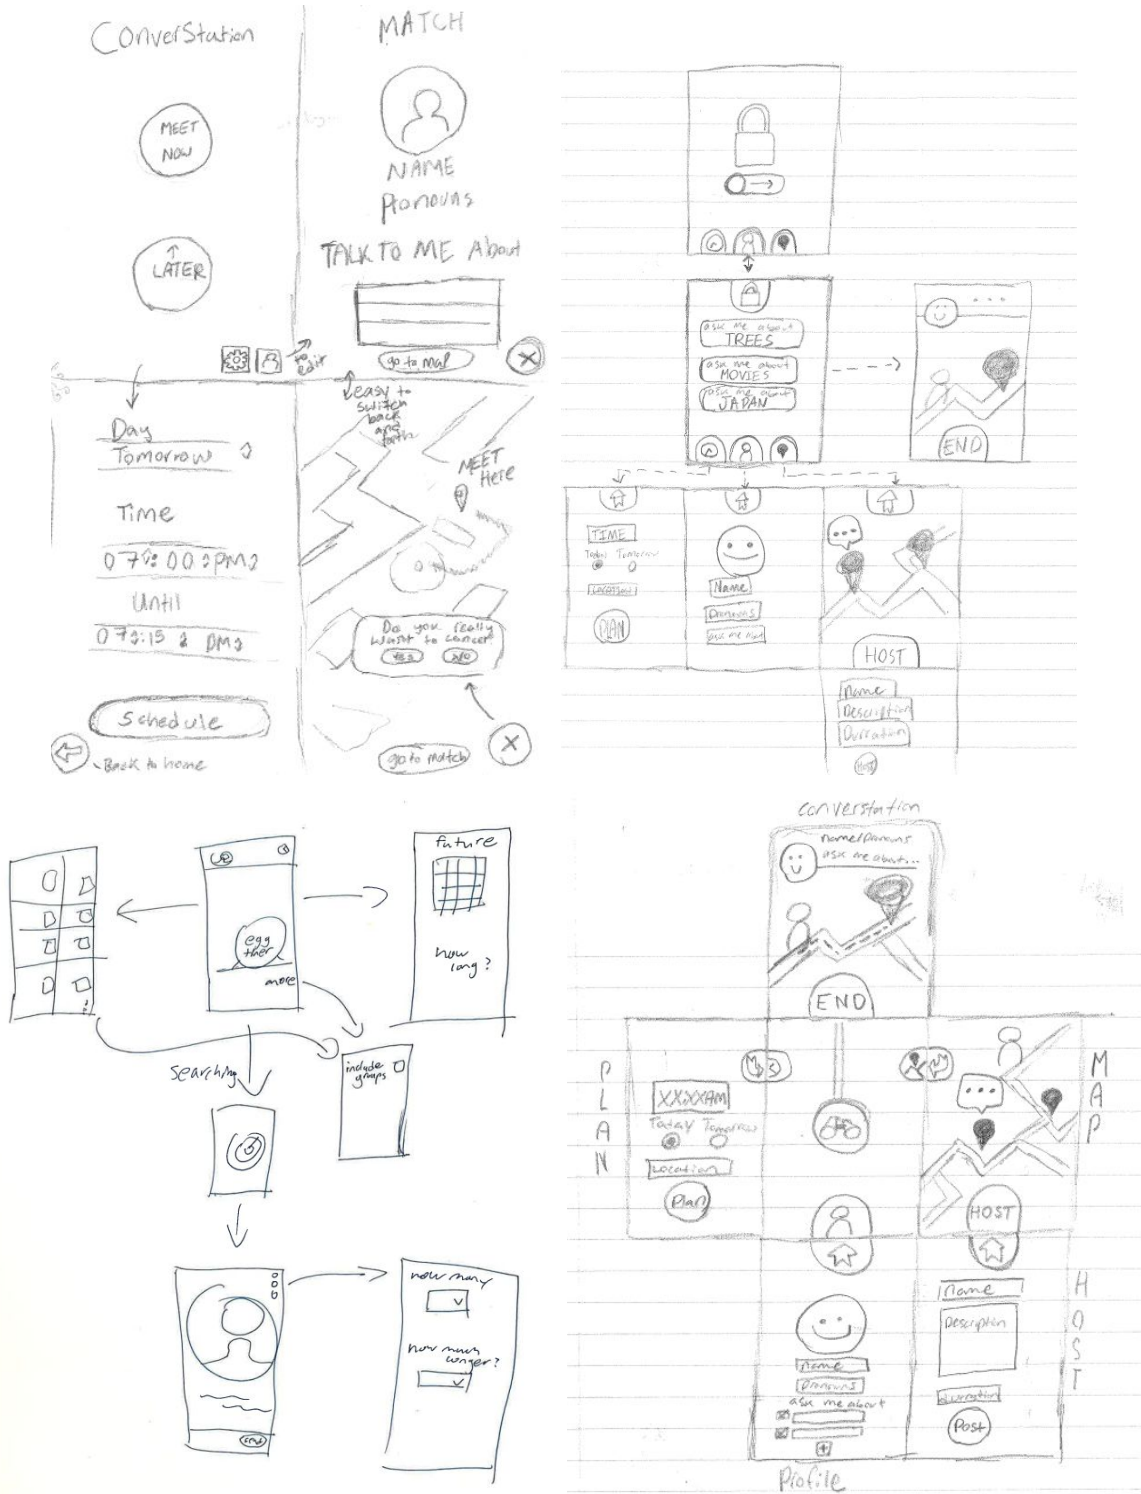 ConverStation
MEET
NOW
LATER
to
edit
MATCH
NAME
Pronouns
TALK TO ME About
go to map
Day
Tomorrow
Time
07:00 PM
Until
07:15 PM
Schedule
Back to home
easy to
switch
back
and
forth
MEET
Here
Do you really
want to cancel
YES NO
go to match
ask me about
TREES
ask me about
MOVIES
ask me about
JAPAN
END
TIME
Today Tomorrow
Location
PLAN
Name
Pronouns
ask me about
HOST
Name
Description
Durration
Host
egg
timer
more
future
how
long?
searching
include
groups
how many
how much
longer?
converstation
name/pronouns
ask me about...
END
PLAN
XX:XXAM
Today Tomorrow
Location
Plan
MAP
HOST
name
pronouns
ask me about
Profile
name
Description
durration
Post
HOST